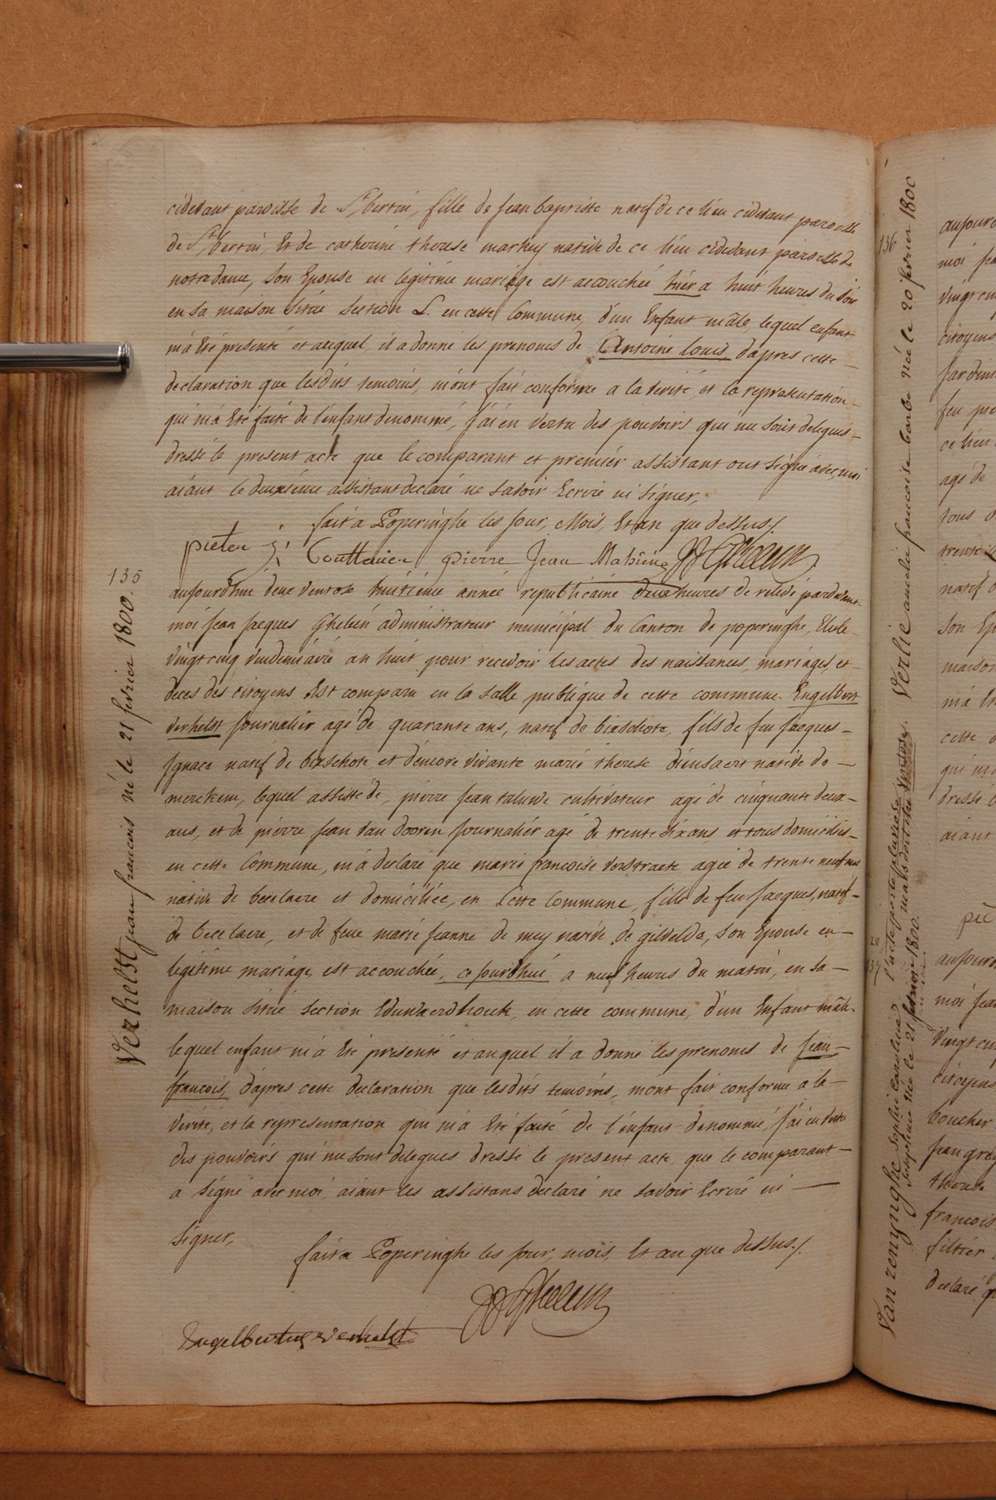 cidevant paroisse de St bertin, fille de Jean baptiste natif de ce lieu cidevant paroisse
de St bertin, Et de catherine therese markey native de ce lieu cidevant paroisse de
notre dame, son Epouse en legitime mariage est accouchée hier a huit heures du soir
en sa maison située section L. en cette Commune, d'un Enfant mâle, lequel enfant
m'a été présenté et auquel il a donné les prenoms de Antoine louis, d'apres cette
declaration que lesdits temoins, m'ont fait conforme a la verité, et la representation
qui m'a été faite de l'enfant denommé, j'ai en vertu des pouvoirs qui me sont delegués
dressé le present acte que le comparant et premier assistant ont signé avec moi
aiant le deuxième assistant declaré ne savoir Ecrire ni signer,
fait a Poperinghe les jour, Mois, Et an que dessus /
pieter J: Couttenier pierre Jean
135
aujourdhui deux ventose huitième année republicaine deux heures de relevé pardevant
moi Jean Jacques Ghelein administrateur municipal du Canton de poperinghe, Elu le
vingt cinq vendemiaire an huit pour recevoir les actes des naissances, mariages, et
deces des citoyens Est comparu en la salle publique de cette commune Engelbert
verhelst journalier agé de quarante ans, natif de bixschote, fils de feu Jacques
Ignace natif de bixschote et d'encore vivante marie therese native de
merckem, lequel assisté de, pierre Jean cultivateur agé de cinquante deux
ans, et de pierre Jean van dooren journalier agé de trente six ans et tous domiciliés
en cette Commune, m'a declaré que marie francoise verstraete agée de trente neuf ans
native de becelaere et domiciliée, en Cette Commune, fille de feu Jacques, natif
de becelaere, et de feue marie Jeanne de muy native de son Epouse en
legitime mariage, est accouchée, ce jourdhui a neuf heures du matin, en sa
maison située section Edewaerdhoek, en cette commune, d'un Enfant mâle
lequel enfant m'a été présenté et auquel il a donné les prenoms de jean
francois, d'apres cette declaration que lesdits temoins, m'ont fait conforme a la
verité, et la representation qui m'a été faite de l'enfant denommé, j'ai en vertu
des pouvoirs qui me sont delegués dressé le present acte, que le comparant
a signé avec moi aiant les assistans declaré ne savoir Ecrire ni
signer,
fait a Poperinghe les jour, mois, Et an que dessus /
Engelbertus verhelst
Verhelst jean francois né le 21 fevrier 1800.
136.
Verlie amelie francoise barbe née le 20 fevrier 1800
Van renynghe Sophie
née le 21 fevrier 1800.
aujourd
moi
vingt cinq
citoyens
jardin
feu
ce lieu
agé de
tous
trente
natif
son Ep
maison
m'a
cette
qui m'a
dressé
aiant
aujourd
moi jean
vingt cin
citoyens
boucher
jean
francois
declaré